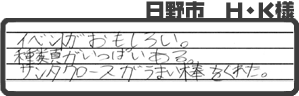 日野市 H・K様
イベントがおもしろい。
種類がいっぱいある。
サンタクロースがうまい棒をくれた。